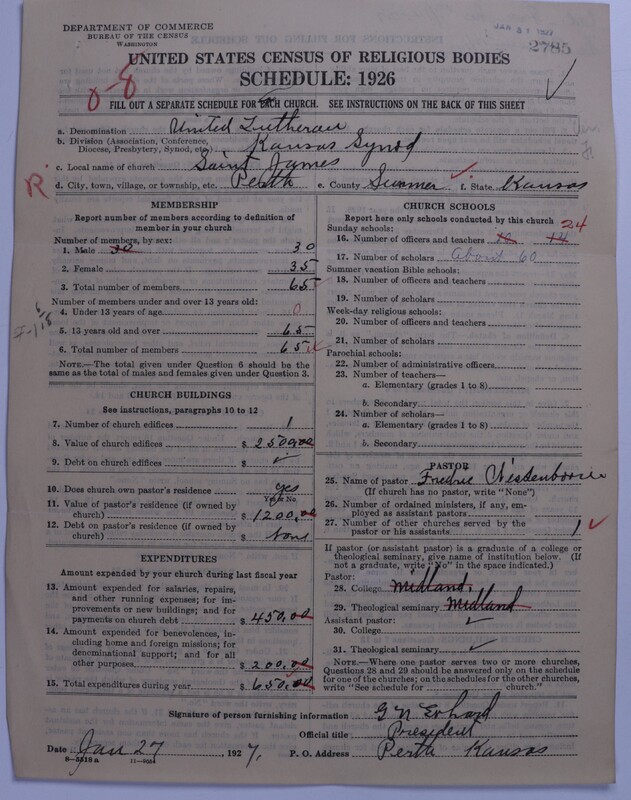 DEPARTMENT OF COMMERCE
BUREAU OF THE CENSUS
WASHINGTON
2785
UNITED STATES CENSUS OF RELIGIOUS BODIES
SCHEDULE: 1926
FILL OUT A SEPARATE SCHEDULE FOR EACH CHURCH. SEE INSTRUCTIONS ON THE BACK OF THIS SHEET
a. Denomination United Lutheran
b. Division (Association, Conference, Diocese, Presbytery, Synod, etc.) Kansas Synod
c. Local name of church Saint James
R
d. City, town, village, or township, etc. Perth e. County Sumner f. State Kansas
MEMBERSHIP
Report number of members according to definition of
member in your church
Number of members, by sex:
1. Male 30 30
2. Female 35
3. Total number of members 65
Number of members under and over 13 years old:
4. Under 13 years of age 0
5. 13 years old and over 65
6. Total number of members 65
NOTE.—The total given under Question 6 should be
same as the total of males and females given under Question 3.
CHURCH BUILDINGS
See instructions, paragraphs 10 to 12
7. Number of church edifices 1
8. Value of church edifices $ 2500.00
9. Debt on church edifices $
10. Does church own pastor's residence yes
Yes or No
11. Value of pastor's residence (if owned by
church) $ 1200.00
12. Debt on pastor's residence (if owned by
church) $ None
EXPENDITURES
Amount expended by your church during last fiscal year
13. Amount expended for salaries, repairs,
and other running expenses; for im-
provements or new buildings; and for
payments on church debt $ 450.00
14. Amount expended for benevolences, in-
cluding home and foreign missions; for
denominational support; and for all
other purposes $ 200.00
15. Total expenditures during year $ 650.00
CHURCH SCHOOLS
Report here only schools conducted by this church
Sunday schools: 24
16. Number of officers and teachers 10 14
17. Number of scholars About 60
Summer vacation Bible schools:
18. Number of officers and teachers
19. Number of scholars
Week-day religious schools:
20. Number of officers and teachers
21. Number of scholars
Parochial schools:
22. Number of administrative officers
23. Number of teachers—
a. Elementary (grades 1 to 8)
b. Secondary
24. Number of scholars—
a. Elementary (grades 1 to 8)
b. Secondary
PASTOR
25. Name of pastor Fredric
(If church has no pastor, write "None")
26. Number of ordained ministers, if any, em-
ployed as assistant pastors
27. Number of other churches served by the
pastor or his assistants 1
If pastor (or assistant pastor) is a graduate of a college or
theological seminary, give name of institution below. (If
not a graduate, write "No" in the space indicated.)
Pastor:
28. College Midland
29. Theological seminary Midland
Assistant pastor:
30. College
31. Theological seminary
NOTE.—Where one pastor serves two or more churches,
Questions 28 and 29 should be answered only on the schedule
for one of the churches; on the schedules for the other churches,
write "See schedule for church."
Signature of person furnishing information G N Erhard
Official title President
Date Jan 27, 1927. P. O. Address Perth Kansas
8—3318a 11—9064